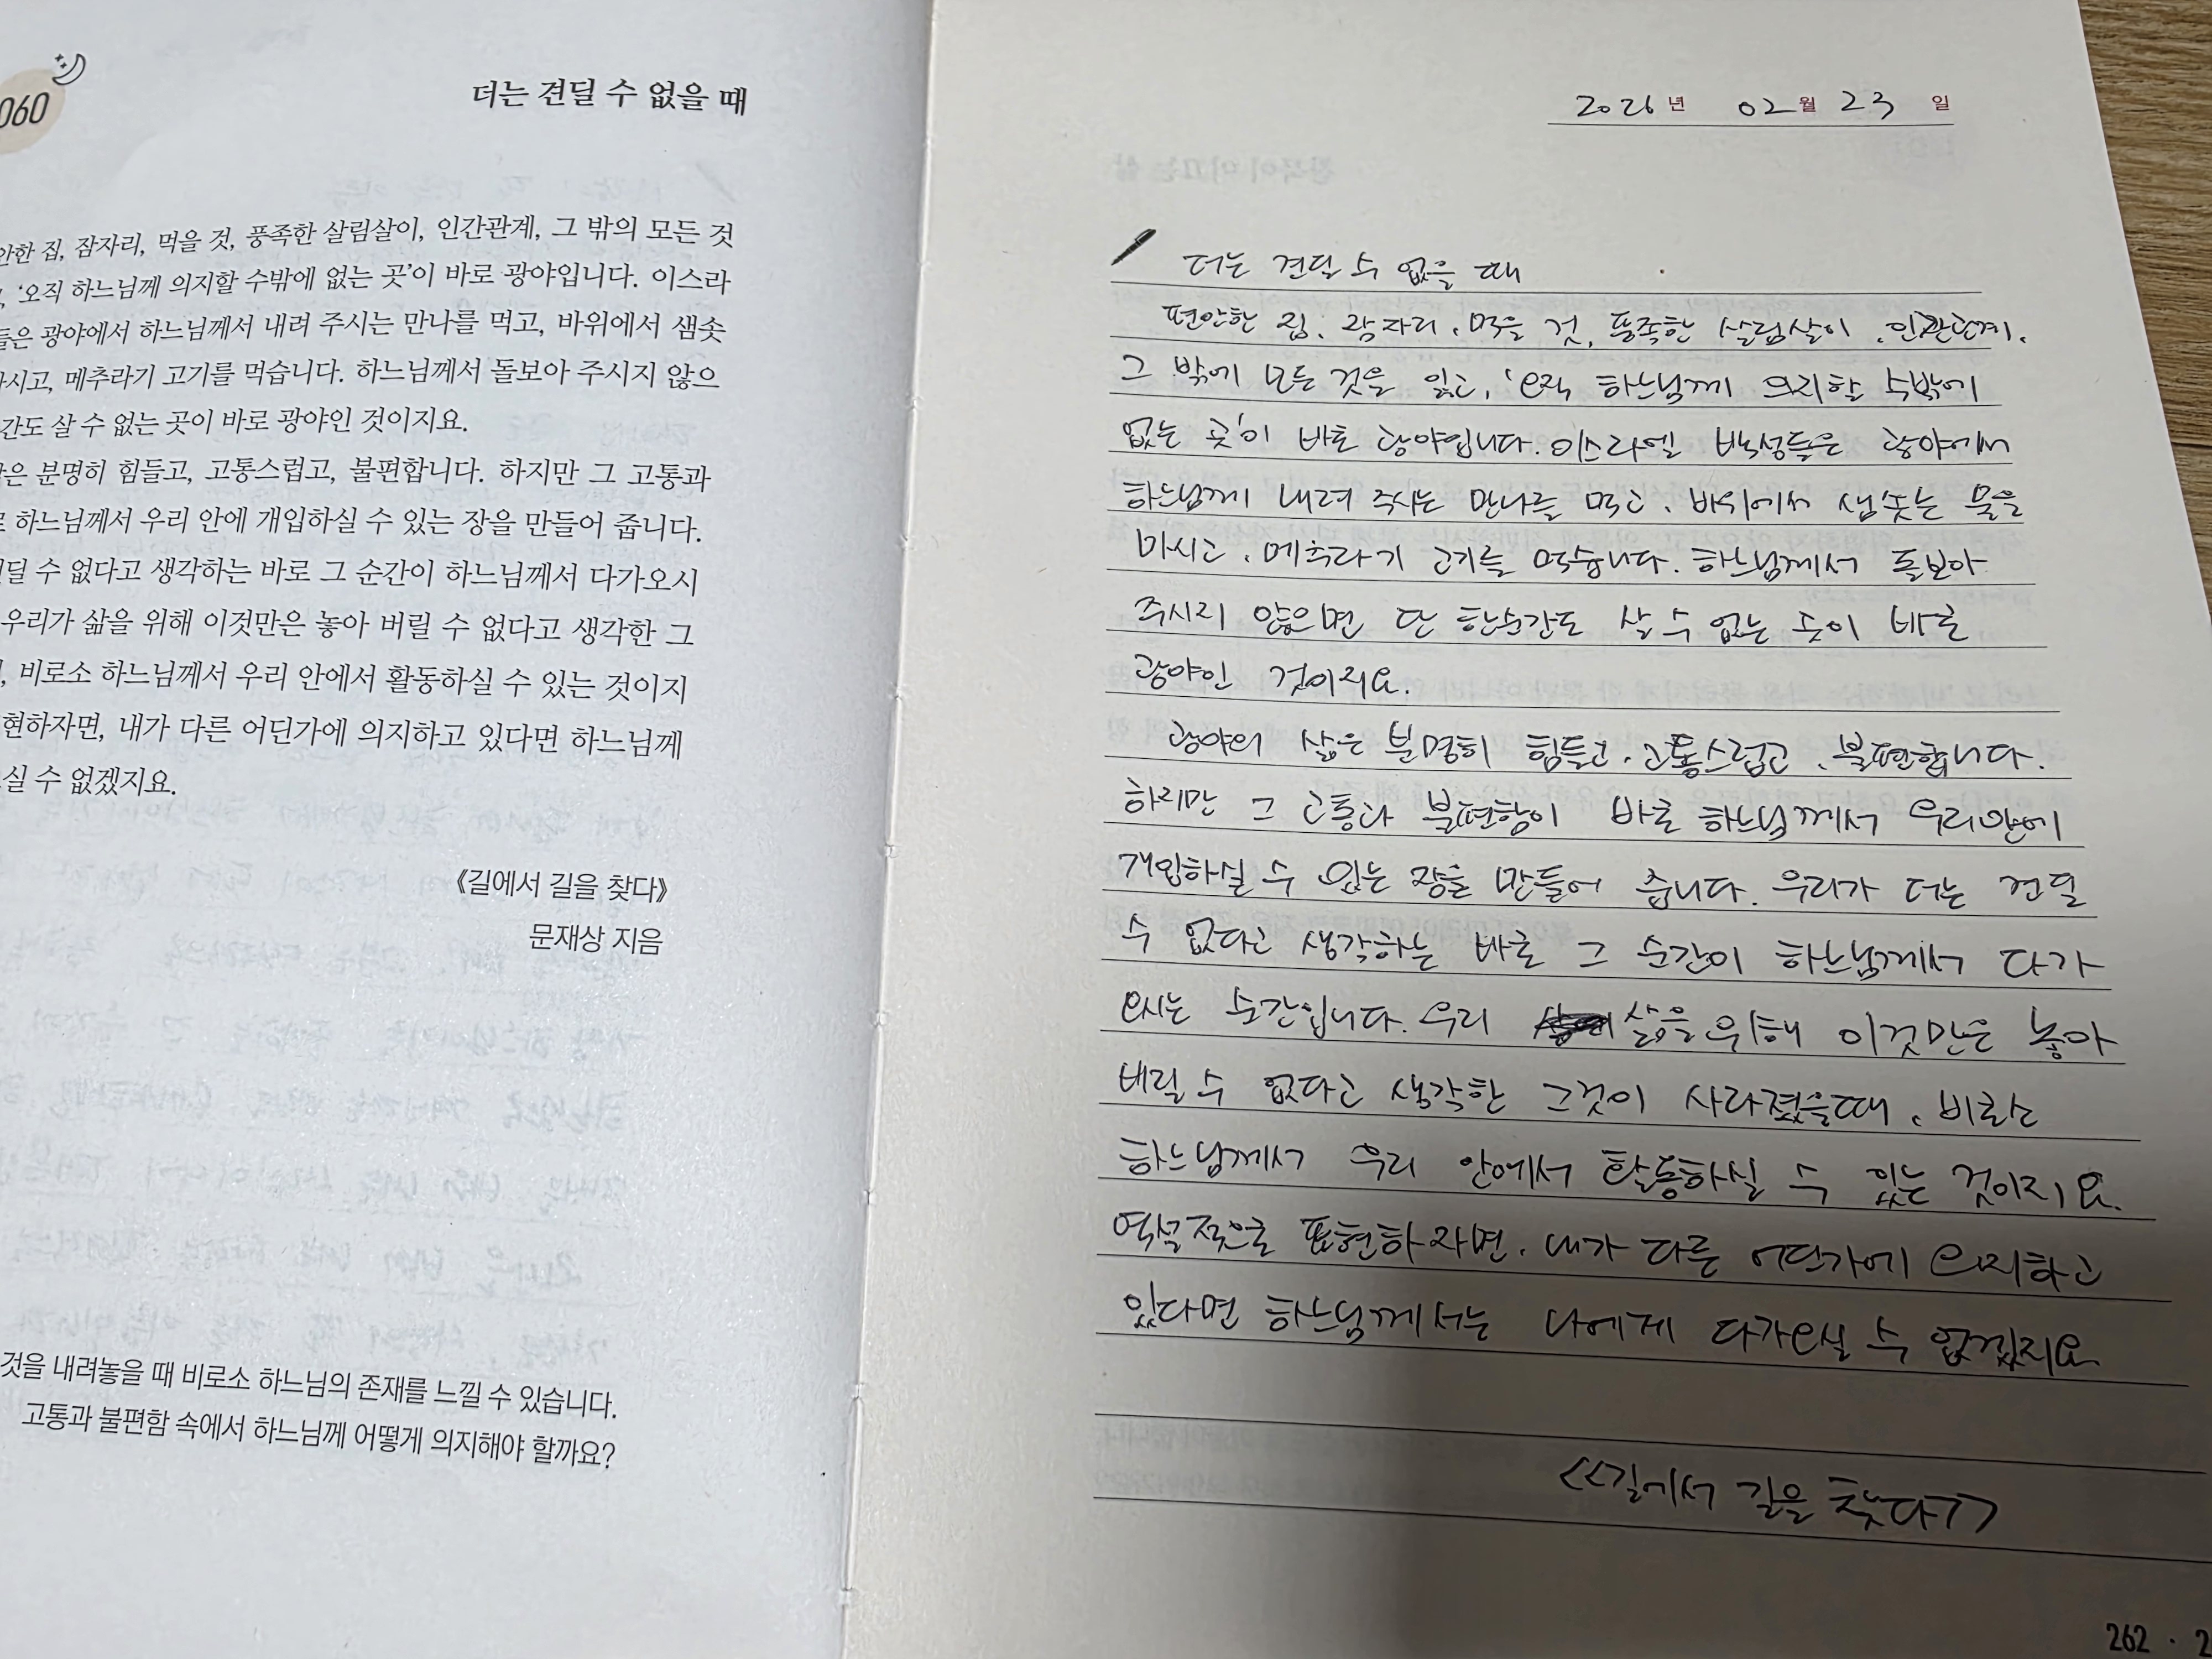 060
더는 견딜 수 없을 때
안한 집, 잠자리, 먹을 것, 풍족한 살림살이, 인간관계, 그 밖의 모든 것
, ‘오직 하느님께 의지할 수밖에 없는 곳’이 바로 광야입니다. 이스라
들은 광야에서 하느님께서 내려 주시는 만나를 먹고, 바위에서 샘솟
마시고, 메추라기 고기를 먹습니다. 하느님께서 돌보아 주시지 않으
간도 살 수 없는 곳이 바로 광야인 것이지요.
은 분명히 힘들고, 고통스럽고, 불편합니다. 하지만 그 고통과
로 하느님께서 우리 안에 개입하실 수 있는 장을 만들어 줍니다.
딜 수 없다고 생각하는 바로 그 순간이 하느님께서 다가오시
우리가 삶을 위해 이것만은 놓아 버릴 수 없다고 생각한 그
, 비로소 하느님께서 우리 안에서 활동하실 수 있는 것이지
현하자면, 내가 다른 어딘가에 의지하고 있다면 하느님께
실 수 없겠지요.
《길에서 길을 찾다》
문재상 지음
것을 내려놓을 때 비로소 하느님의 존재를 느낄 수 있습니다.
고통과 불편함 속에서 하느님께 어떻게 의지해야 할까요?
2026년 02월 23일
더는 견딜 수 없을 때
편안한 집, 잠자리, 먹을 것, 풍족한 살림살이, 인관관계,
그 밖에 모든 것을 잃고, ‘오직 하느님께 의지할 수밖에
없는 곳’이 바로 광야입니다. 이스라엘 백성들은 광야에서
하느님께 내려 주시는 만나를 먹고, 바위에서 샘솟는 물을
마시고, 메추라기 고기를 먹습니다. 하느님께서 돌보아
주시지 않으면 단 한순간도 살 수 없는 곳이 바로
광야인 것이지요.
광야의 삶은 분명히 힘들고, 고통스럽고, 불편합니다.
하지만 그 고통과 불편함이 바로 하느님께서 우리안에
개입하실 수 있는 장을 만들어 줍니다. 우리가 더는 견딜
수 없다고 생각하는 바로 그 순간이 하느님께서 다가
오시는 순간입니다. 우리 삶을 위해 이것만은 놓아
버릴 수 없다고 생각한 그것이 사라졌을때, 비로소
하느님께서 우리 안에서 활동하실 수 있는 것이지요.
역설적으로 표현하자면, 내가 다른 어딘가에 의지하고
있다면 하느님께서는 나에게 다가오실 수 없겠지요
<<길에서 길을 찾다>>
262 · 2